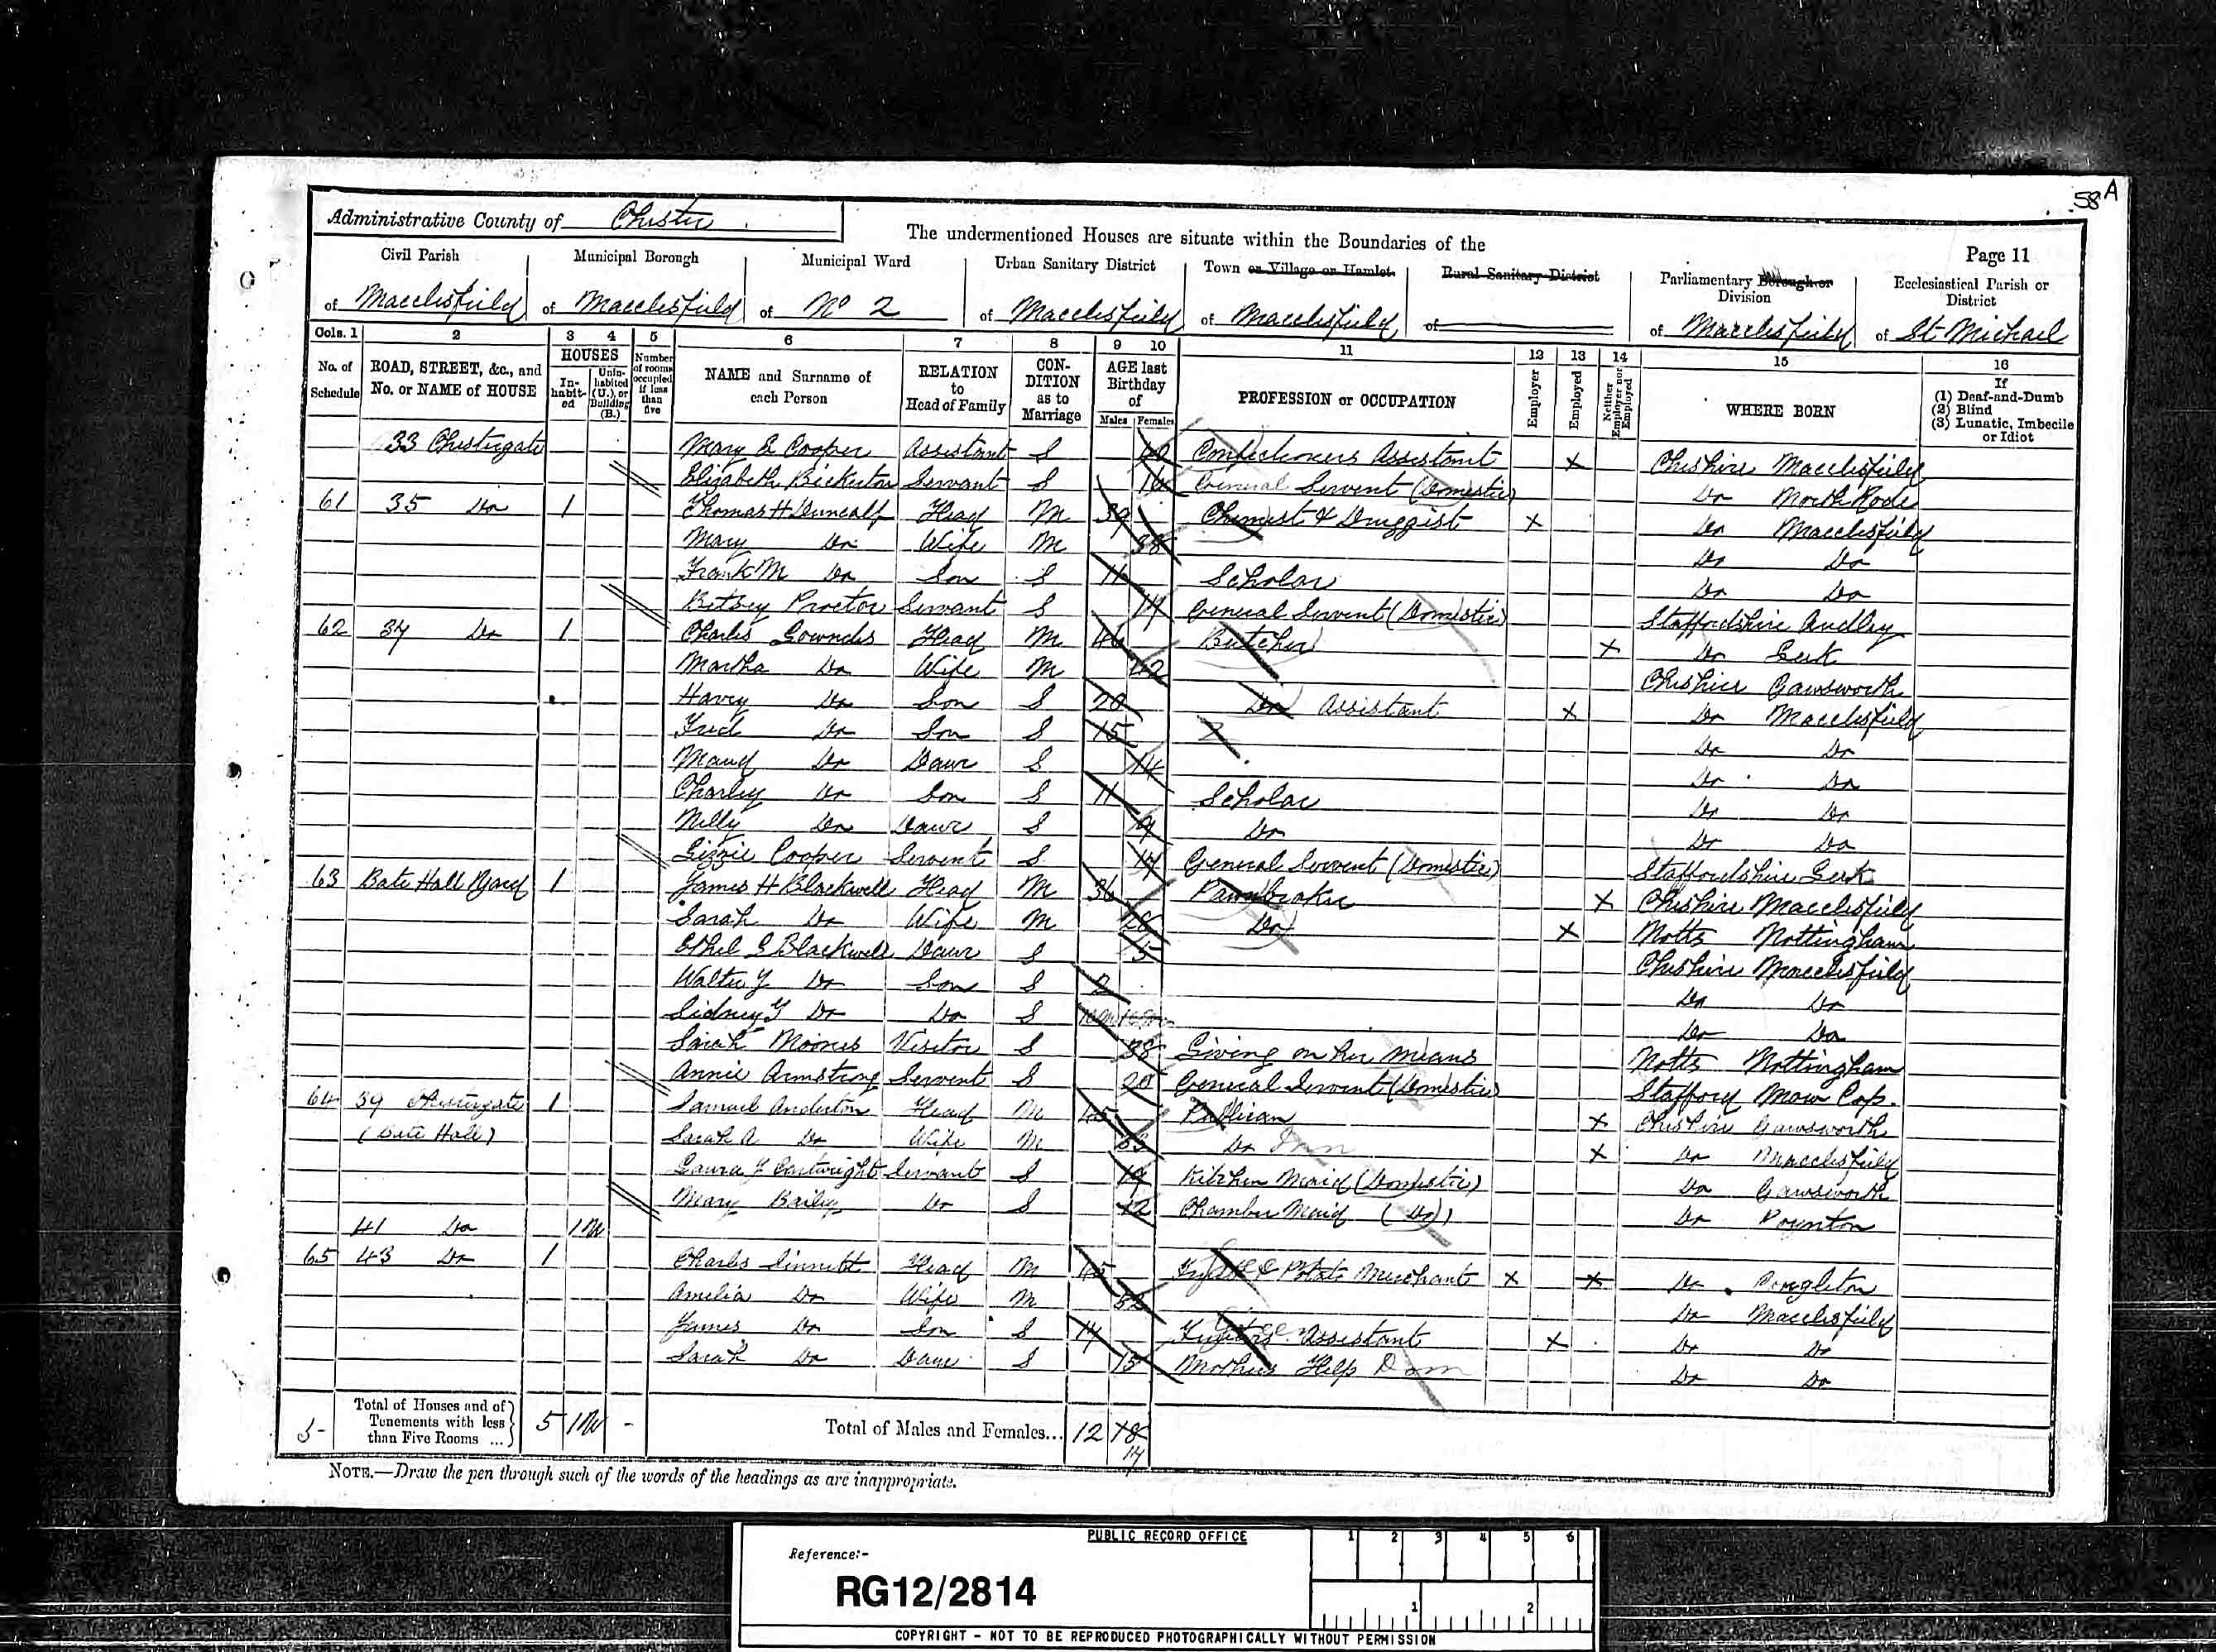 58A
Administrative County of Chester
The undermentioned Houses are situate within the Boundaries of the
Page 11
Civil Parish of Macclesfield
Municipal Borough of Macclesfield
Municipal Ward of No 2
Urban Sanitary District of Macclesfield
Town or Village or Hamlet of Macclesfield
Rural Sanitary District of
Parliamentary Borough or Division of Macclesfield
Ecclesiastical Parish or District of St Michael
Cols. 1 2 3 4 5 6 7 8 9 10 11 12 13 14 15 16
No. of Schedule
ROAD, STREET, &c., and No. or NAME of HOUSE
HOUSES
In-habit-ed
Unin-habited (U.), or Building (B.)
Number of rooms occupied if less than five
NAME and Surname of each Person
RELATION to Head of Family
CON-DITION as to Marriage
AGE last Birthday of
Males Females
PROFESSION or OCCUPATION
Employer
Employed
Neither Employer nor Employed
WHERE BORN
If
(1) Deaf-and-Dumb
(2) Blind
(3) Lunatic, Imbecile or Idiot
33 Chestergate Mary E Cooper Assistant S Confectioners Assistant X Cheshire Macclesfield
Elizabeth Bickerton Servant S 16 General Servent (Domestic) Do North Rode
61 35 Do 1 Thomas H Duncalf Head M 39 Chemist & Druggist X Do Macclesfield
Mary Do Wife M 38 Do Do
Frank M Do Son S 11 Scholar Do Do
Betsey Proctor Servant S 17 General Servent (Domestic) Staffordshire Audley
62 37 Do 1 Charles Lowndes Head M 46 Butcher X Do Leek
Martha Do Wife M 42 Cheshire Gawsworth
Harry Do Son S 20 Do Assistant X Do Macclesfield
Fred Do Son S 15 Do Do
Maud Do Daur S 14 Do Do
Charley Do Son S 11 Scholar Do Do
Nelly Do Daur S 9 Do Do Do
Lizzie Cooper Servent S 17 General Servent (Domestic) Staffordshire Leek
63 Bate Hall Yard 1 James H Blackwell Head M 36 Pawnbroker X Cheshire Macclesfield
Sarah Do Wife M 28 Do X Notts Nottingham
Ethel G Blackwell Daur S 5 Cheshire Macclesfield
Walter Y Do Son S 2 Do Do
Sidney Y Do Do S Do Do
Sarah Moores Visitor S 38 Living on her means Notts Nottingham
Annie Armstrong Servent S 20 General Servent (Domestic) Stafford Mow Cop.
64 39 Chestergate 1 Samuel Anderton Head M 45 Publican X Cheshire Gawsworth
(Bate Hall) Sarah A Do Wife M Do X Do Macclesfield
Laura Y Cartwright Servant S 19 Kitchen Maid (Domestic) Do Gawsworth
Mary Bailey Do S Chamber Maid (Do) Do Poynton
41 Do 1
65 43 Do 1 Charles Sinnett Head M Potato Merchant X X Do Congleton
Amelia Do Wife M 52 Do Macclesfield
James Do Son S 17 Assistant X Do Do
Sarah Do Daur S 15 Mothers Help Dom Do Do
Total of Houses and of Tenements with less than Five Rooms ... 5 1 -
Total of Males and Females... 12 18
17
NOTE.—Draw the pen through such of the words of the headings as are inappropriate.
PUBLIC RECORD OFFICE
1 2 3 4 5 6
Reference:-
RG12/2814
1 2
COPYRIGHT - NOT TO BE REPRODUCED PHOTOGRAPHICALLY WITHOUT PERMISSION